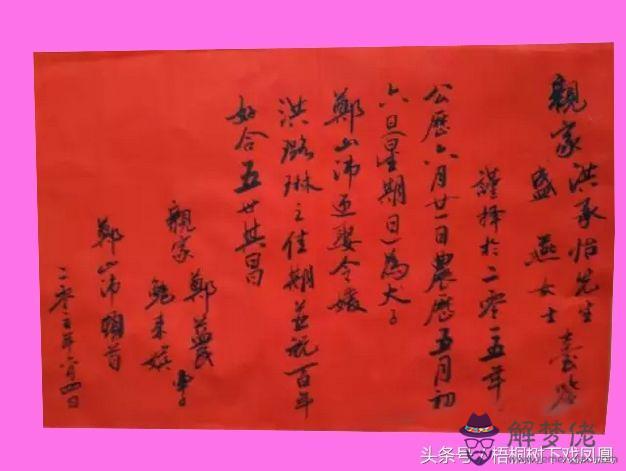 親家洪承怡先生臺鑒
盛燕女士
謹擇於二零一五年
公歷六月廿一日農歷五月初
六日(星期日)為大子
鄭山沛迎娶令嬡
洪璐琳之佳期並祝百年
好合五世其昌
親家鄭益民
鮑来嬪
鄭山沛頓首
二零一五年六月四日
头条号/梧桐树下戏凤凰
解梦佬